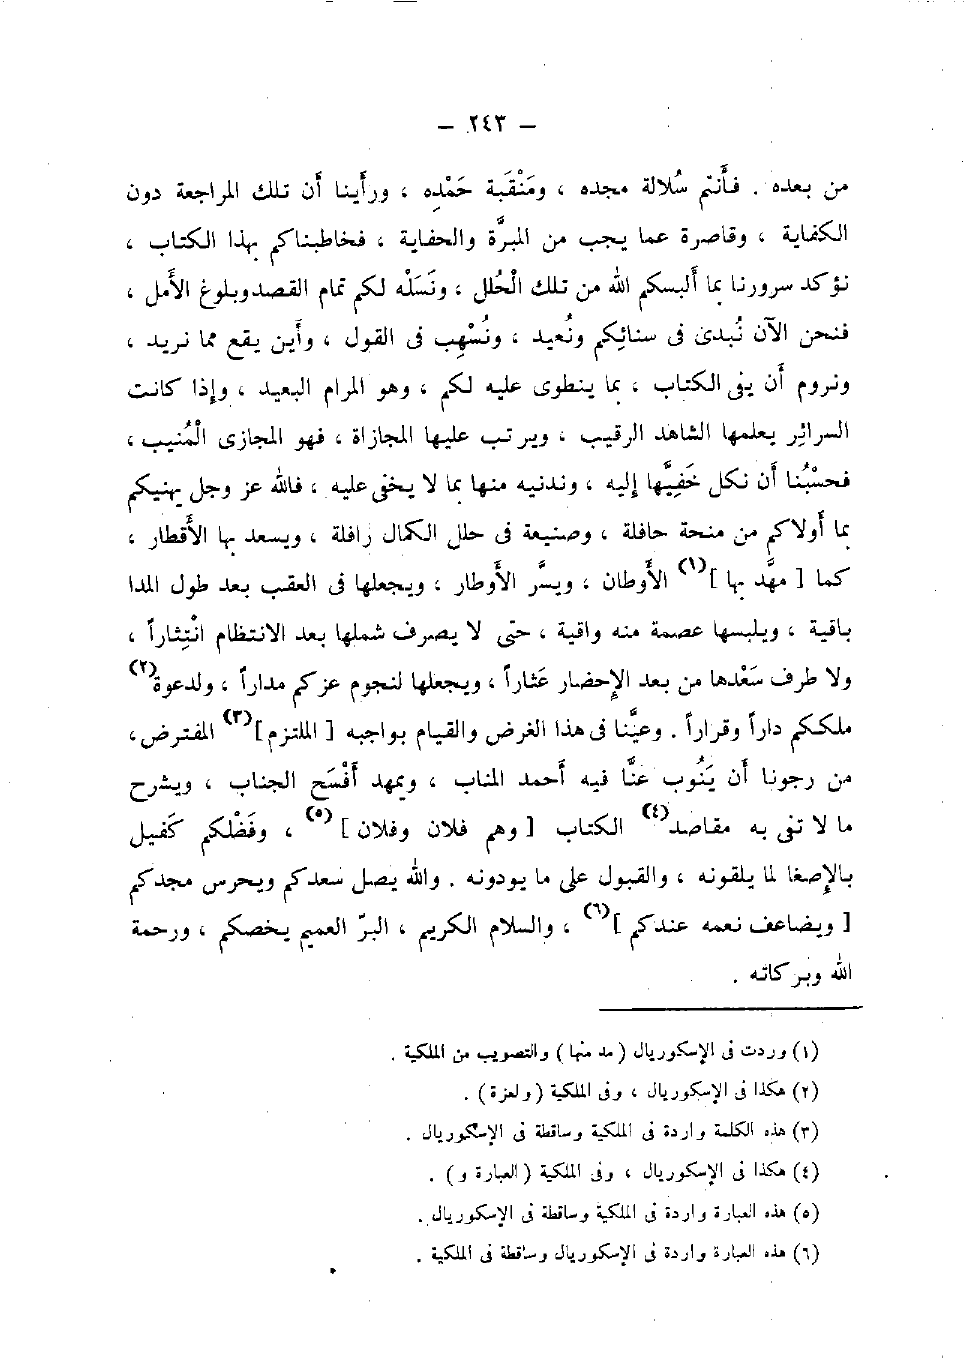 — ٢٤٣ —
من بعده . فأَنتم سُلالة مجده ، ومَنْقَبة حَمْدِه ، ورأَينا أن تلك المراجعة دون
الكفاية ، وقاصرة عما يجب من المبرَّة والحفاية ، فخاطبناكم بهذا الكتاب ،
نؤكد سرورنا بما أَلبسكم الله من تلك الْحُلل ، ونَسَلْه لكم تمام القصد وبلوغ الأَمل ،
فنحن الآن نُبدئ فى سنائِكم ونُعيد ، ونُسْهِب فى القول ، وأَين يقع مما نريد ،
ونروم أَن يفى الكتاب ، بما ينطوى عليه لكم ، وهو المرام البعيد ، وإذا كانت
السرائِر يعلمها الشاهد الرقيب ، ويرتب عليها المجازاة ، فهو المجازى الْمُنيب ،
فحسْبُنا أَن نكل خَفِيَّها إليه ، وندنيه منها بما لا يخفى عليه ، فالله عز وجل يهنيكم
بما أَولاكم من منحة حافلة ، وصنيعة فى حلل الكمال رافلة ، ويسعد بها الأَقطار ،
كما [ مهَّد بها ](١) الأَوطان ، ويسَّر الأَوطار ، ويجعلها فى العقب بعد طول المدا
باقية ، ويلبسها عصمة منه واقية ، حتى لا يصرف شملها بعد الانتظام انْتِثاراً ،
ولا طرف سَعْدها من بعد الإِحضار عَثاراً ، ويجعلها لنجوم عزكم مداراً ، ولدعوة(٢)
ملككم داراً وقراراً . وعيَّنا فى هذا الغرض والقيام بواجبه [ الملتزم](٣) المفترض،
من رجونا أَن يَنُوب عنَّا فيه أَحمد المناب ، ويمهد أَفْسَح الجناب ، ويشرح
ما لا تفى به مقاصد(٤) الكتاب [ وهم فلان وفلان ](٥) ، وفَضْلكم كَفيل
بالإِصغا لما يلقونه ، والقبول على ما يودونه . والله يصل سعدكم ويحرس مجدكم
[ ويضاعف نعمه عندكم ](٦) ، والسلام الكريم ، البرّ العميم يخصكم ، ورحمة
الله وبركاته .
(١) وردت فى الإسكوريال ( مد منها ) والتصويب من الملكية .
(٢) هكذا فى الإسكوريال ، وفى الملكية ( ولعزة ) .
(٣) هذه الكلمة واردة فى الملكية وساقطة فى الإسكوريال .
(٤) هكذا فى الإسكوريال ، وفى الملكية ( العبارة و ) .
(٥) هذه العبارة واردة فى الملكية وساقطة فى الإسكوريال .
(٦) هذه العبارة واردة فى الإسكوريال وساقطة فى الملكية .